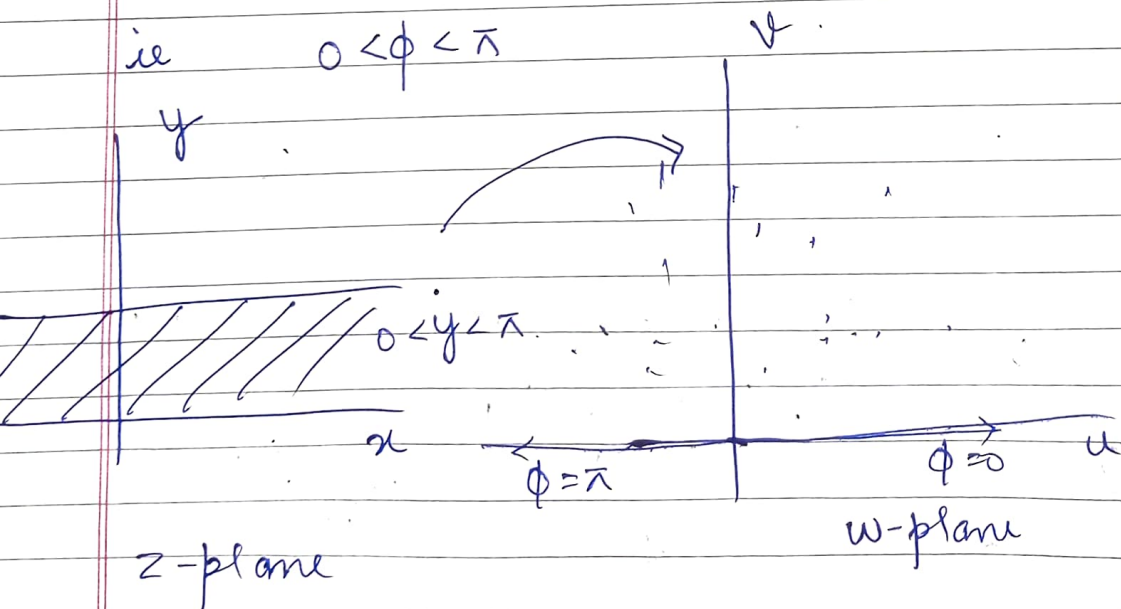 ie 0 < ϕ < π
v
y
0 < y < π.
x
ϕ = π
ϕ = 0
u
w-plane
z-plane